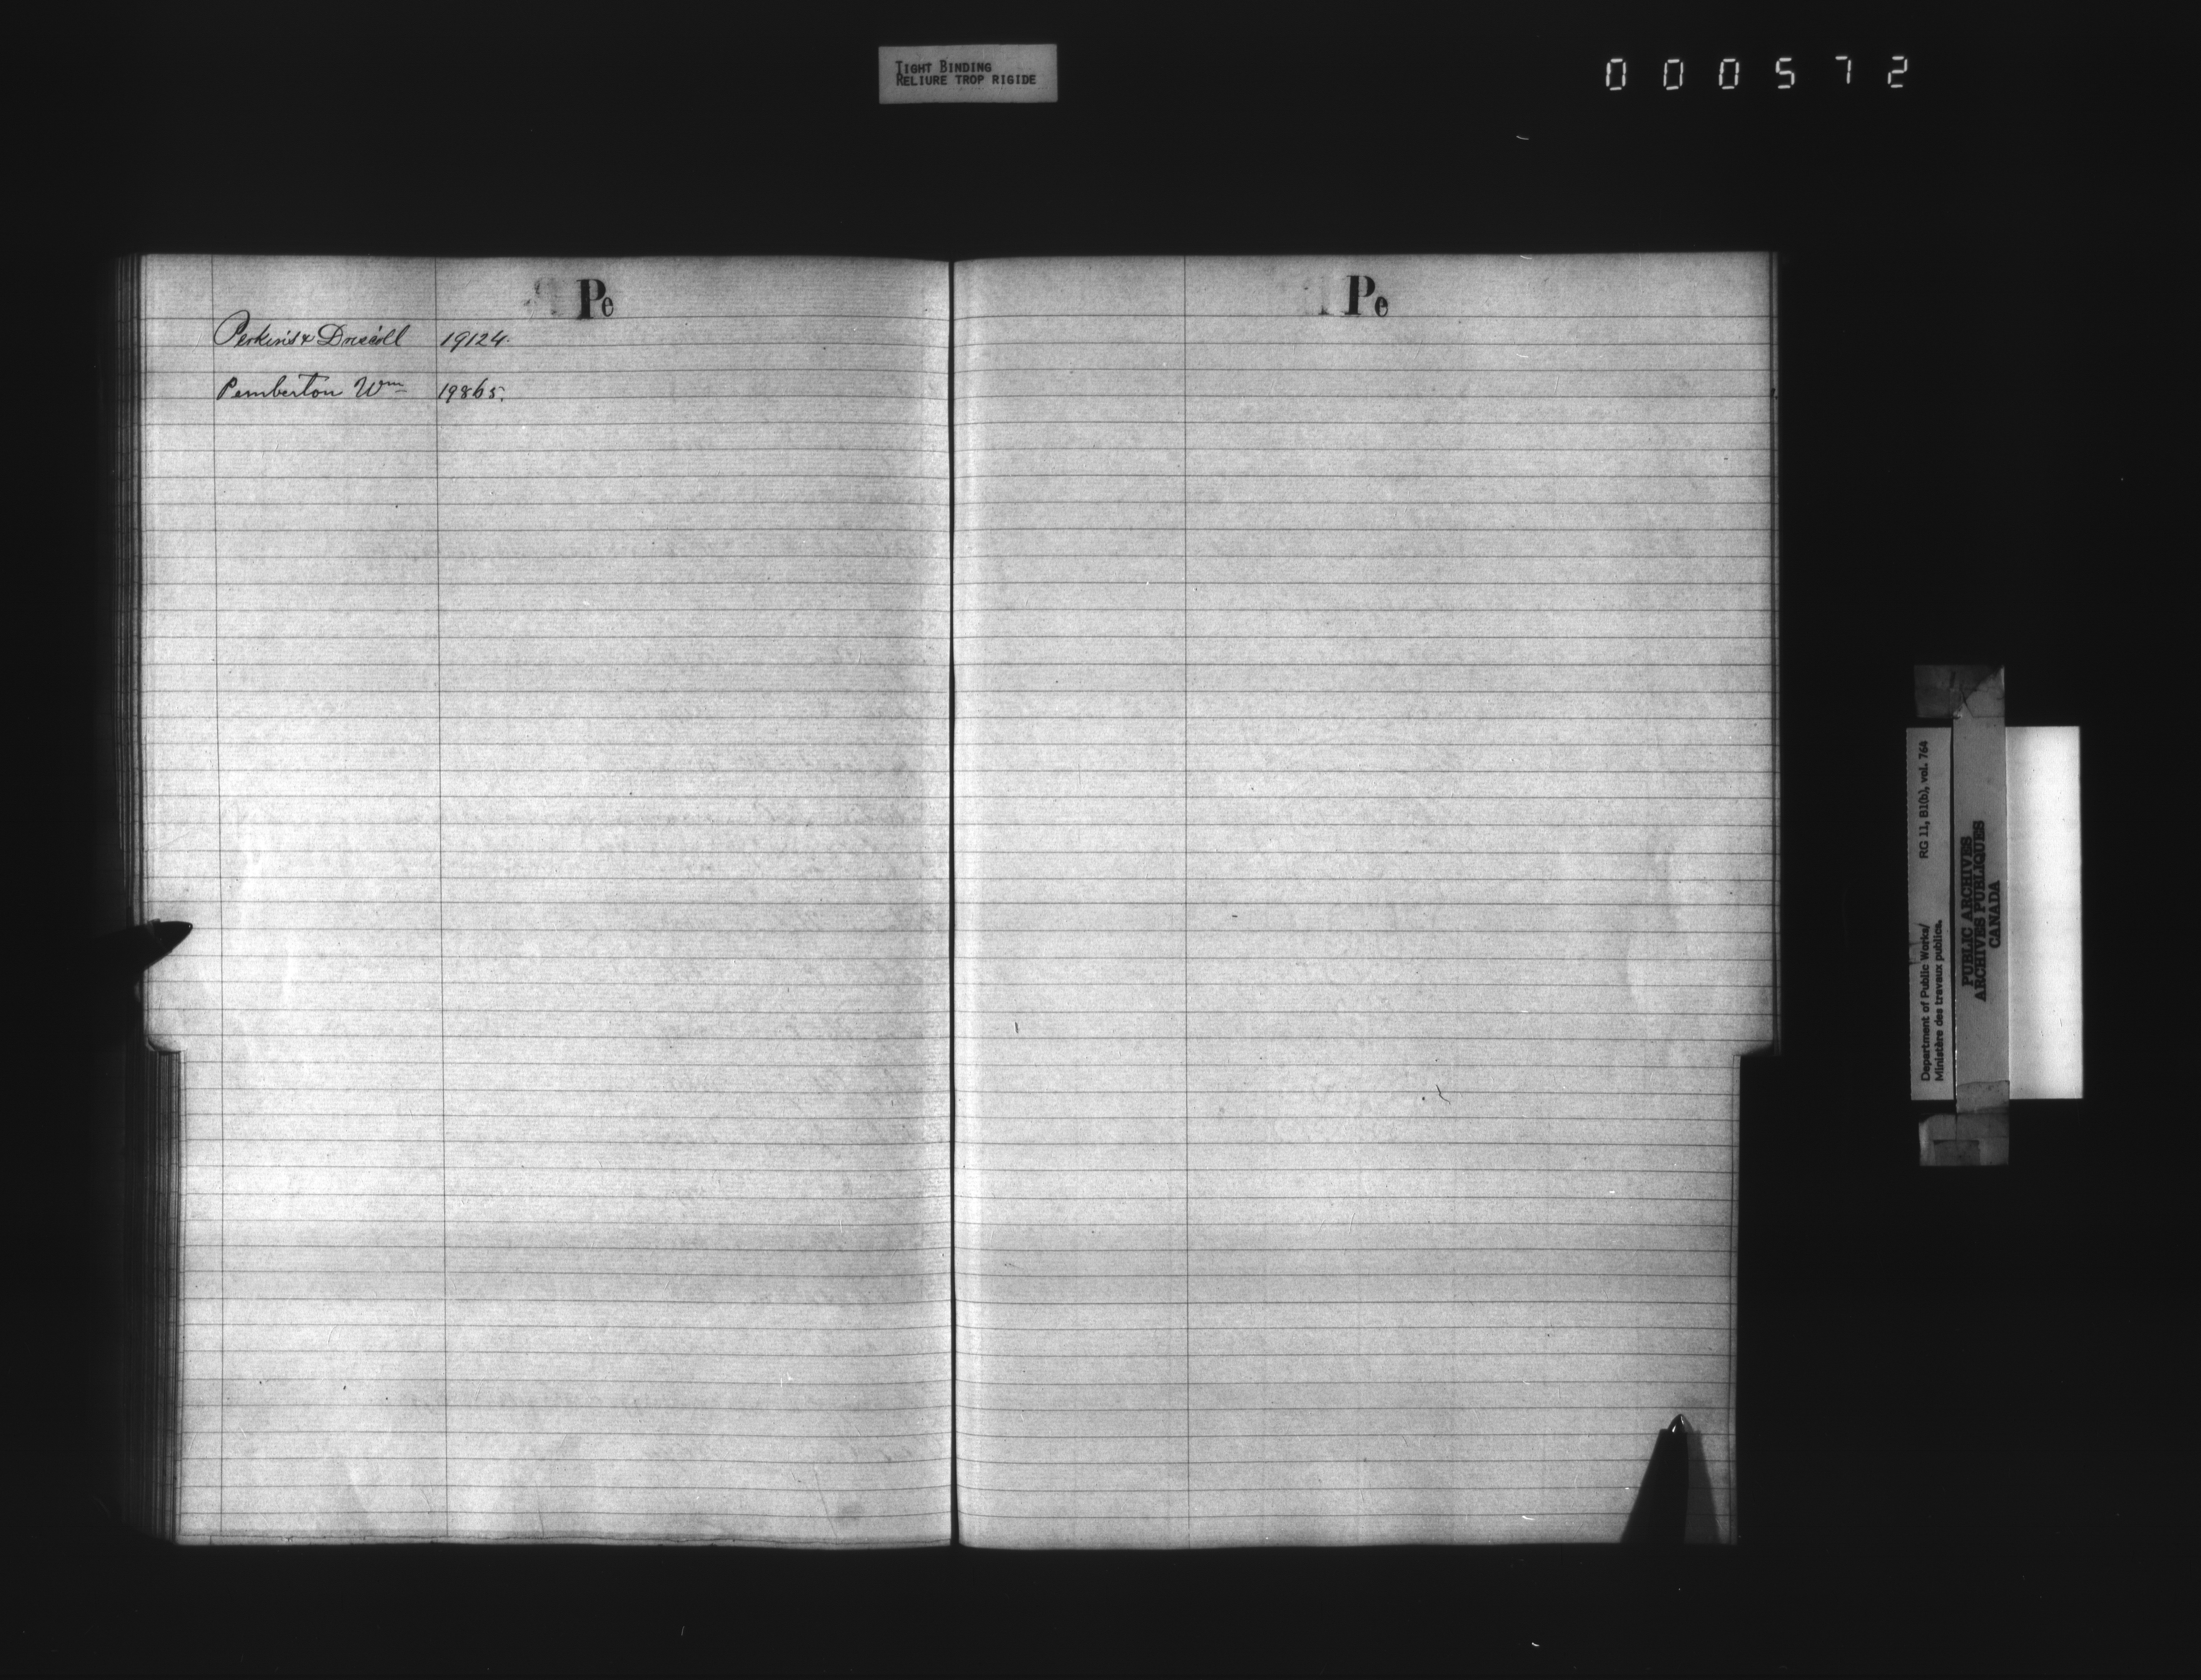 TIGHT BINDING
RELIURE TROP RIGIDE
000572
Pe
Perkins & Driscoll 19124.
Pemberton Wm 19865.
Pe
Department of Public Works/ RG 11, B1(b), vol. 764
Ministère des travaux publics.
PUBLIC ARCHIVES
ARCHIVES PUBLIQUES
CANADA